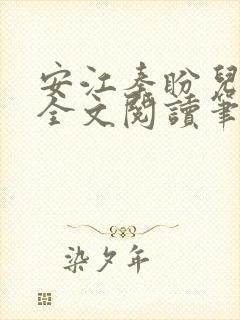 安江秦盼兒
全文閱讀筆
染夕年